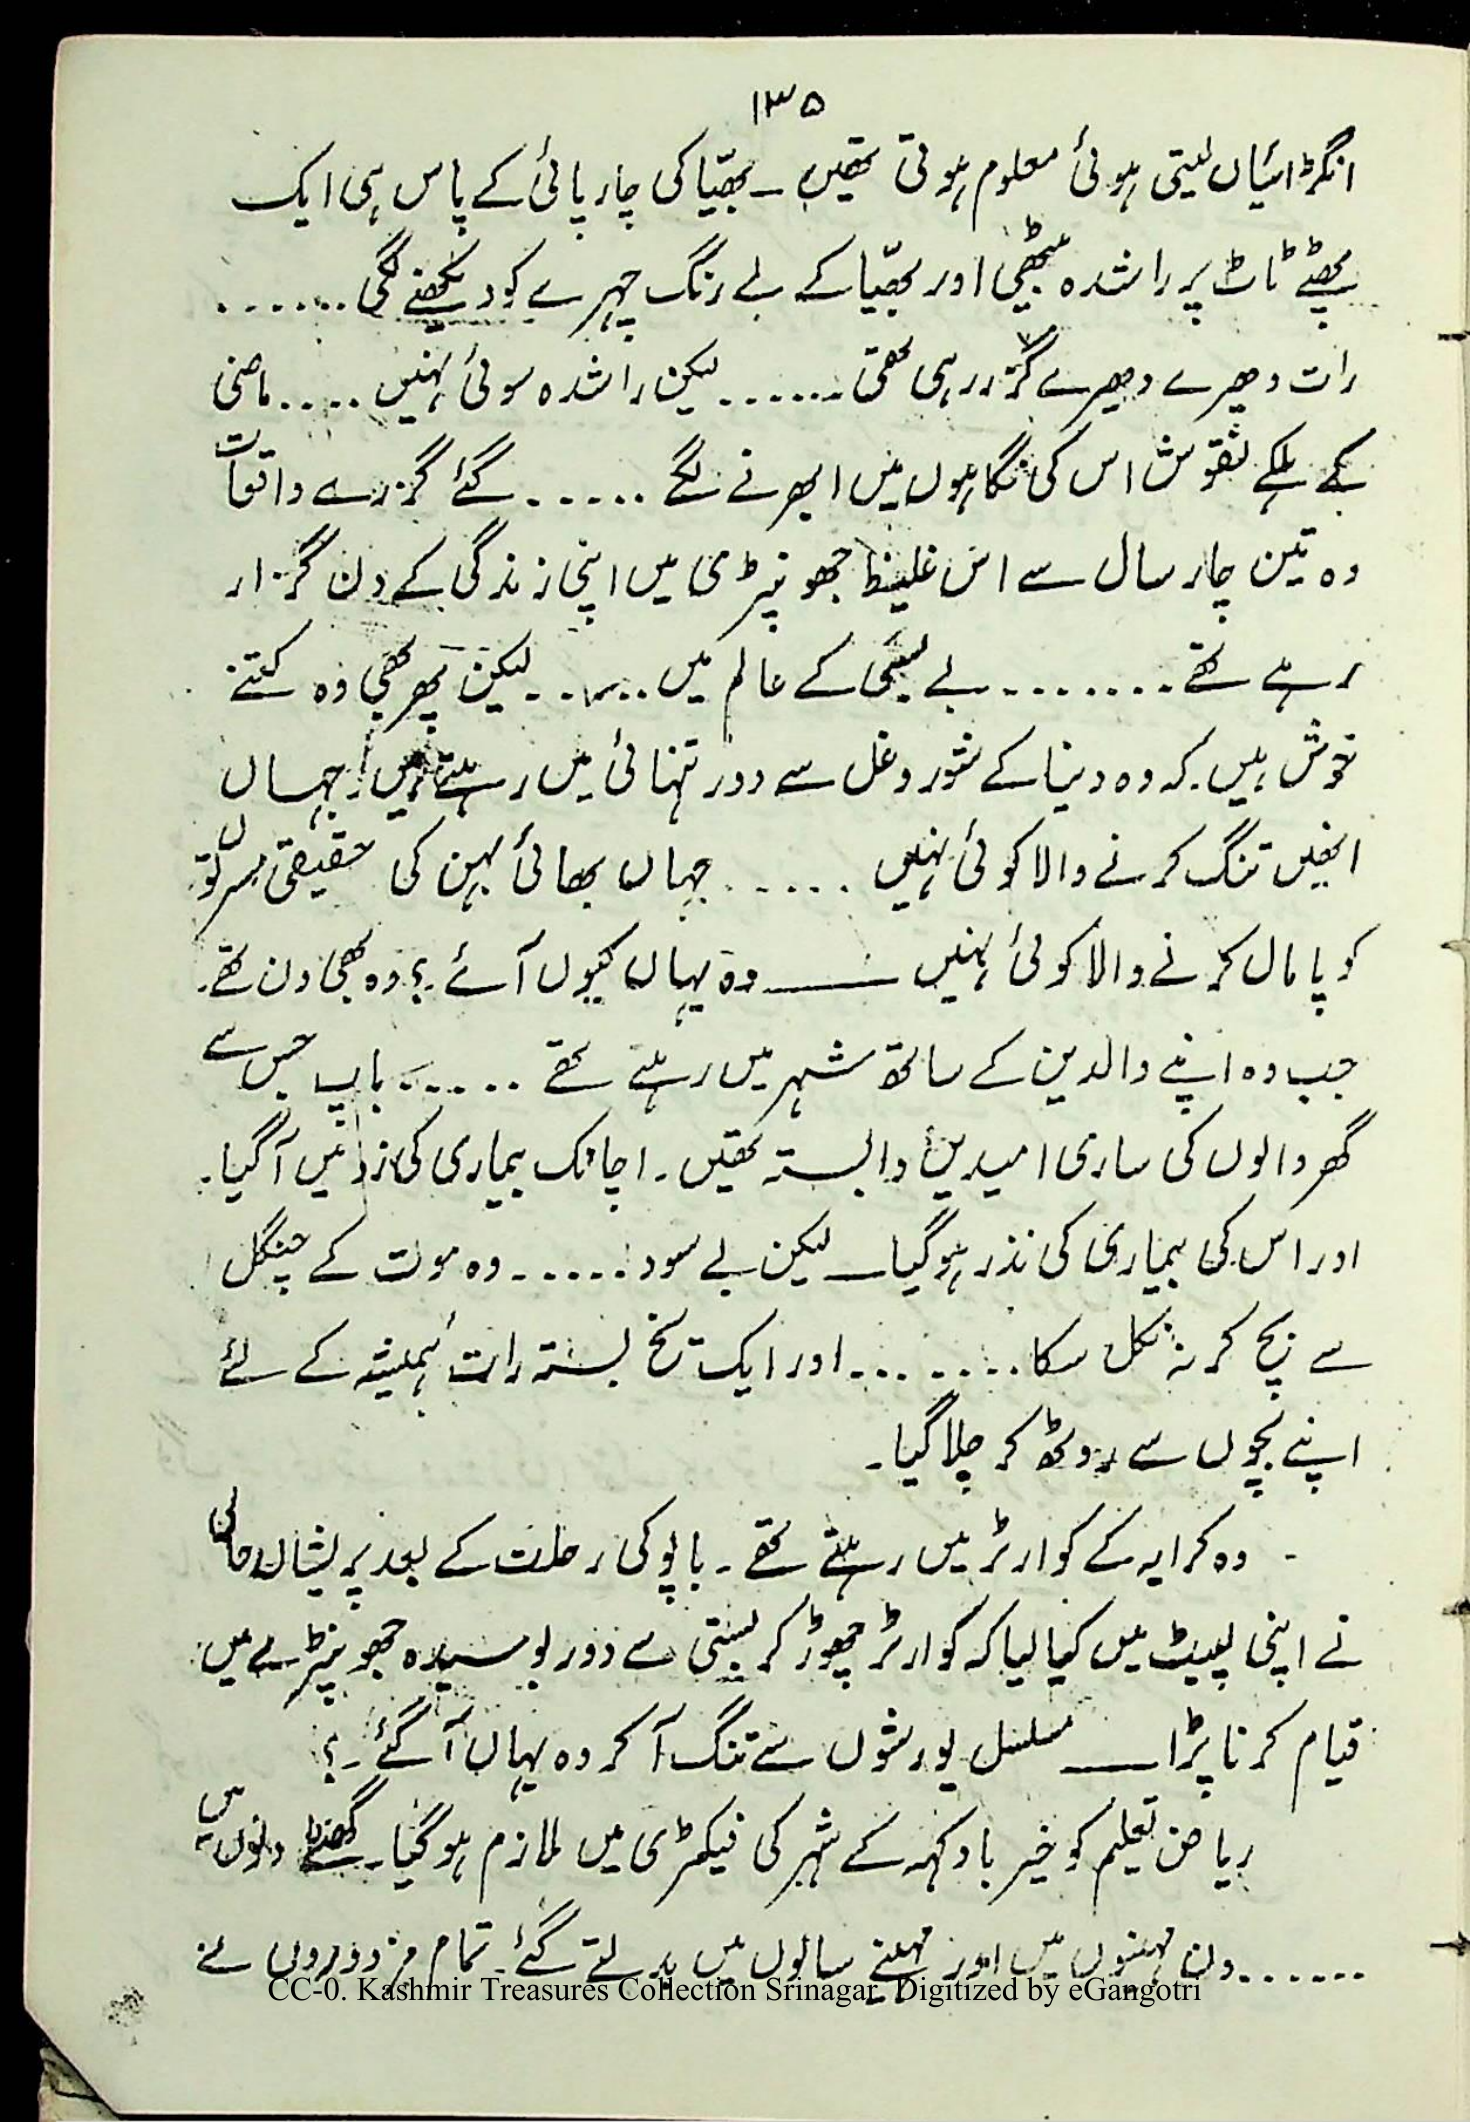 ۱۳۵
انگڑائیاں لیتی ہوئی معلوم ہوتی تھیں ۔ بھیّا کی چارپائی کے پاس ہی ایک
پھٹے ٹاٹ پر راشدہ بیٹھی اور بھیّا کے بے رنگ چہرے کو دیکھنے لگی .......
رات دھیرے دھیرے گزر رہی تھی ...... لیکن راشدہ سوئی نہیں .... ماضی
کے ہلکے نقوش اس کی نگاہوں میں ابھرنے لگے ..... گئے گزرے واقعات
وہ تین چار سال سے اس غلیظ جھونپڑی میں اپنی زندگی کے دن گزار
رہے تھے ........ بے بسی کے عالم میں ..... لیکن پھر بھی وہ کتنے
خوش ہیں کہ وہ دنیا کے شور و غل سے دور تنہائی میں رہتے ہیں، جہاں
انہیں تنگ کرنے والا کوئی نہیں ...... جہاں بھائی بہن کی حقیقی مسرتوں
کو پامال کرنے والا کوئی نہیں ــــــ وہ یہاں کیوں آئے ؟ وہ بھی دن تھے۔
جب وہ اپنے والدین کے ساتھ شہر میں رہتے تھے ..... باپ جس سے
گھر والوں کی ساری امیدیں وابستہ تھیں ۔ اچانک بیماری کی زد میں آگیا ۔
اور اس کی بیماری کی نذر ہو گیا ــ لیکن بے سود ...... وہ موت کے چنگل
سے بچ کر نہ نکل سکا ........ اور ایک یخ بستہ رات ہمیشہ کے لئے
اپنے بچوں سے روٹھ کر چلا گیا ۔
وہ کرایہ کے کوارٹر میں رہتے تھے ۔ باپو کی رحلت کے بعد پریشاں حالی
نے اپنی لپیٹ میں کیا لیا کہ کوارٹر چھوڑ کر بستی سے دور بوسیدہ جھونپڑے میں
قیام کرنا پڑا ــــــ مسلسل یورشوں سے تنگ آ کر وہ یہاں آ گئے ۔؟
ریاض تعلیم کو خیر باد کہہ کے شہر کی فیکٹری میں ملازم ہو گیا۔ گھنٹے دنوں میں
...... دن مہینوں میں اور مہینے سالوں میں بدلتے گئے ۔ تمام مزدوروں نے
CC-0. Kashmir Treasures Collection Srinagar. Digitized by eGangotri